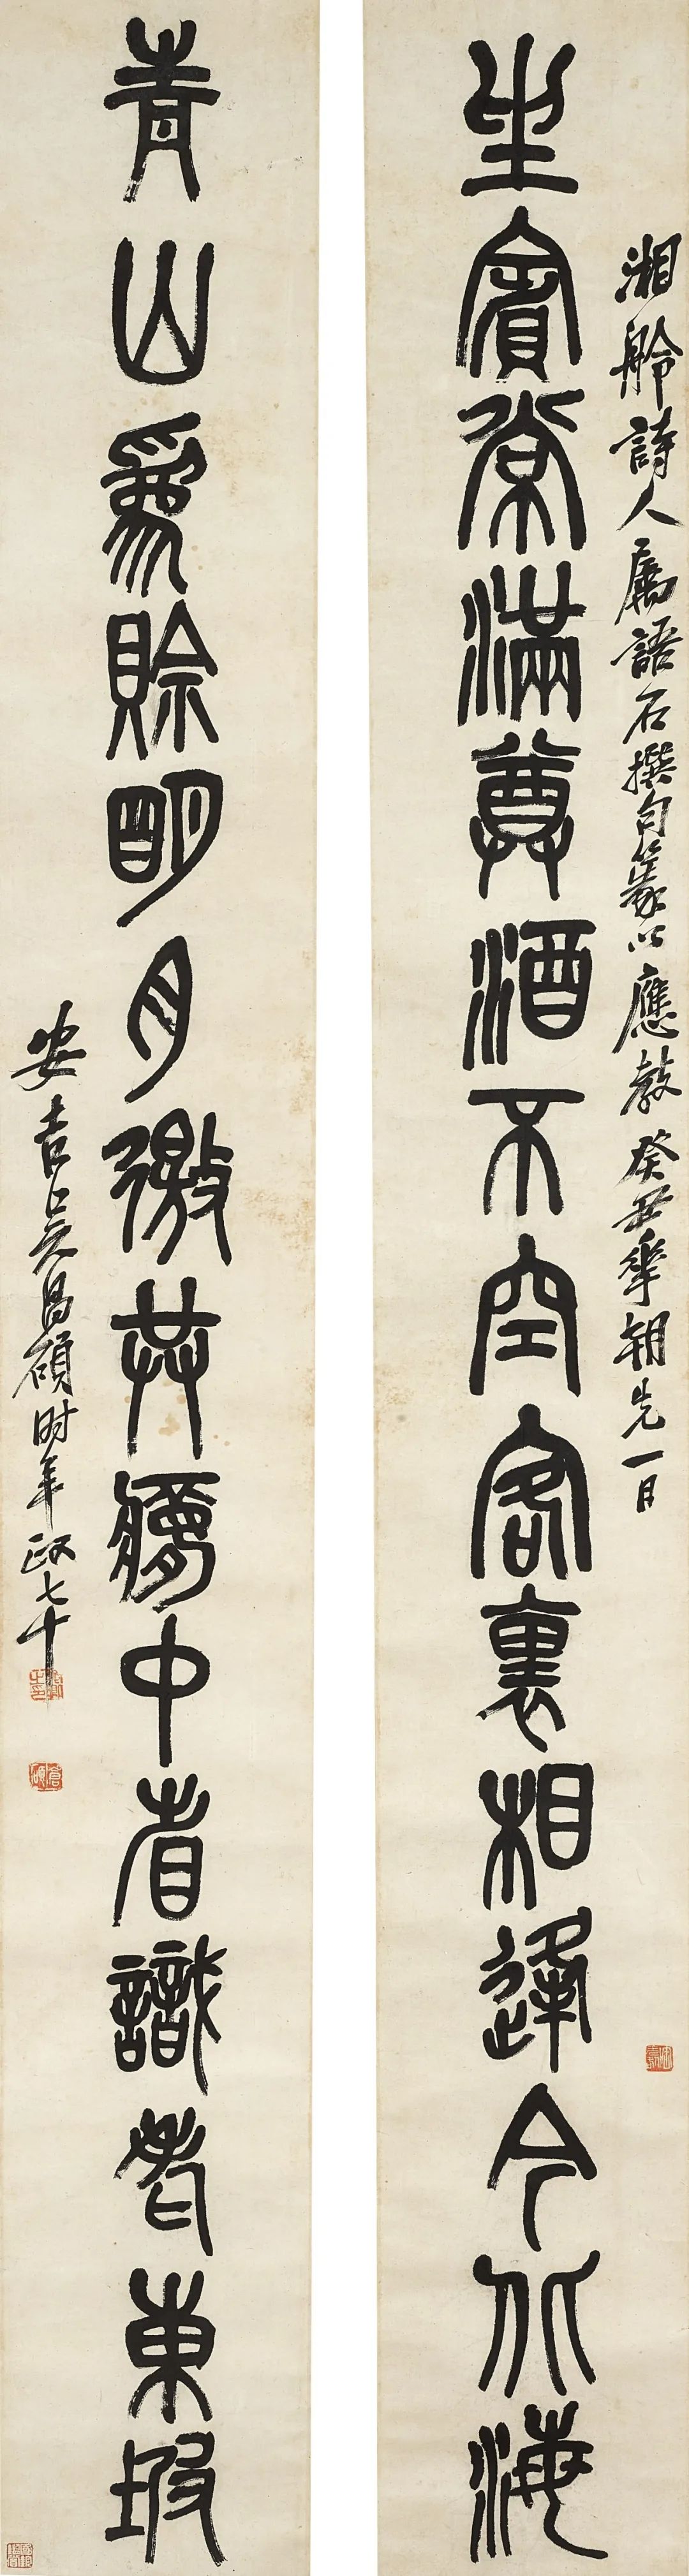 湘舲詩人屬語石撰句篆以應教癸丑華朝先一日
坐賓常滿尊酒不空客裏相逢今北海
青山為賒明月徼共夢中省識老東坡
安吉吳昌碩時年政七十